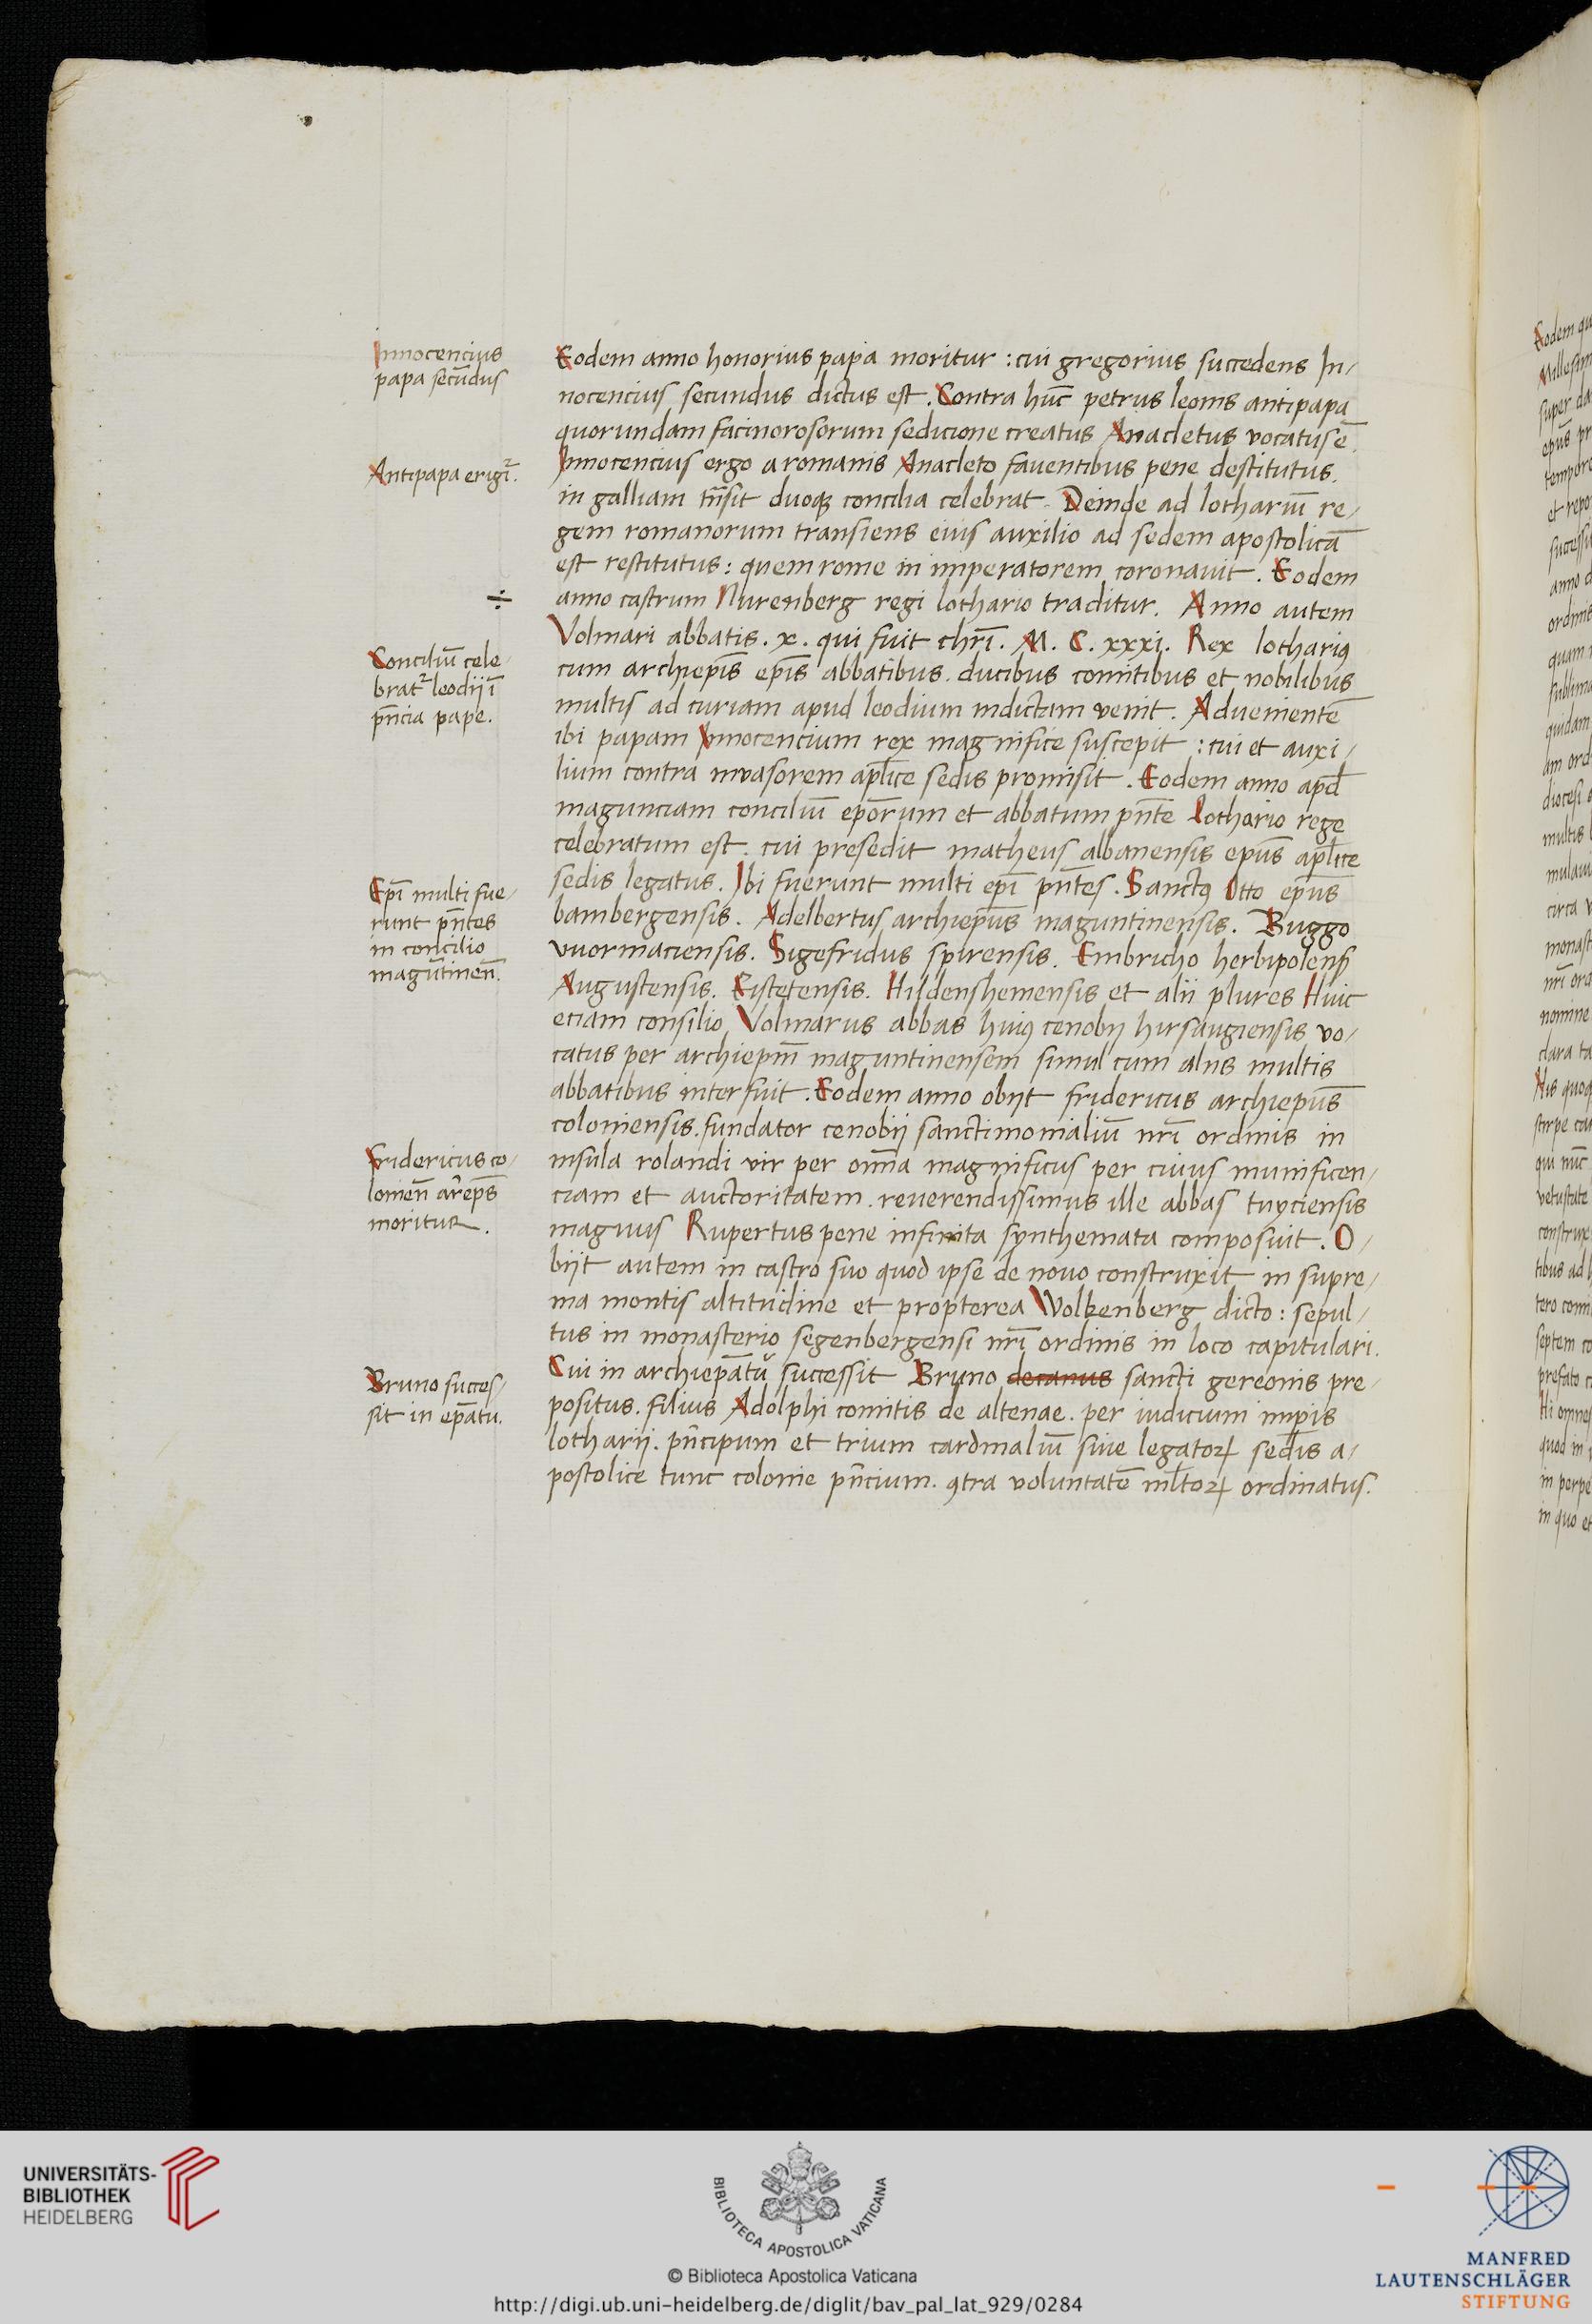 Innocencius
papa secūdus
Antipapa erigit̃.
÷
Conciliū cele/
brat̃ leodij ī
pn̄cia pape.
Ep̄i multi fue/
runt pn̄tes
in concilio
magūtinen̄.
Fridericus co/
lonien̄ arēp̄s
moritur.
Bruno succes/
sit in ep̄atu.
Eodem anno honorius papa moritur : cui gregorius succedens In/
nocencius secundus dictus est. Contra hūc petrus leonis antipapa
quorundam facinorosorum sedicione creatus Anacletus vocatus ē.
Innocencius ergo a romanis Anacleto faventibus pene destitutus.
in galliam trn̄sit duoqꝫ concilia celebrat. Deinde ad lothariū re/
gem romanorum transiens eius auxilio ad sedem apostolicā
est restitutus : quem rome in imperatorem coronavit. Eodem
anno castrum Nurenberg regi lothario traditur. Anno autem
Volmari abbatis. x. qui fuit chrī. M. C. xxxi. Rex lothariꝰ
cum archiep̄is ep̄is abbatibus. ducibus comitibus et nobilibus
multis ad curiam apud leodium indictam venit. Advenientē
ibi papam Innocencium rex magnifice suscepit : cui et auxi/
lium contra invasorem apl̄ice sedis promisit. Eodem anno apd̄
magunciam conciliū epōrum et abbatum pn̄te Lothario rege
celebratum est. cui presedit matheus albanensis ep̄us apl̄ice
sedis legatus. Ibi fuerunt multi ep̄i pn̄tes. Sanctꝰ Otto ep̄us
bambergensis. Adelbertus archiep̄us maguntinensis. Buggo
vuormaciensis. Sigefridus spirensis. Embricho herbipolenſ̄
Augustensis. Eistetensis. Hildenshemensis et alii plures Huic
eciam consilio Volmarus abbas huiꝰ cenobij hirsaugiensis vo/
catus per archiep̄m maguntinensem simul cum aliis multis
abbatibus interfuit. Eodem anno obijt fridericus archiep̄us
coloniensis. fundator cenobij sanctimonialiū nr̄i ordinis in
insula rolandi vir per omīa magnificus per cuius munificen/
ciam et auctoritatem. reverendissimus ille abbas tuyciensis
magnus Rupertus pene infinita synthemata composuit. O/
bijt autem in castro suo quod ipse de novo construxit in supre/
ma montis altitudine et propterea Wolkenberg dicto : sepul/
tus in monasterio segenbergensi nr̄i ordinis in loco capitulari.
Cui in archiep̄atu successit Bruno decanus sancti gereonis pre/
positus. filius Adolphi comitis de altenae. per iudicium imp̄is
lotharij. pn̄cipum et trium cardinaliū sive legatoꝝ sedis a/
postolice tunc colonie pn̄cium. ꝯtra voluntatē ml̄toꝝ ordinatus.
UNIVERSITÄTS-
BIBLIOTHEK
HEIDELBERG
BIBLIOTECA APOSTOLICA VATICANA
© Biblioteca Apostolica Vaticana
http://digi.ub.uni-heidelberg.de/diglit/bav_pal_lat_929/0284
MANFRED
LAUTENSCHLÄGER
STIFTUNG